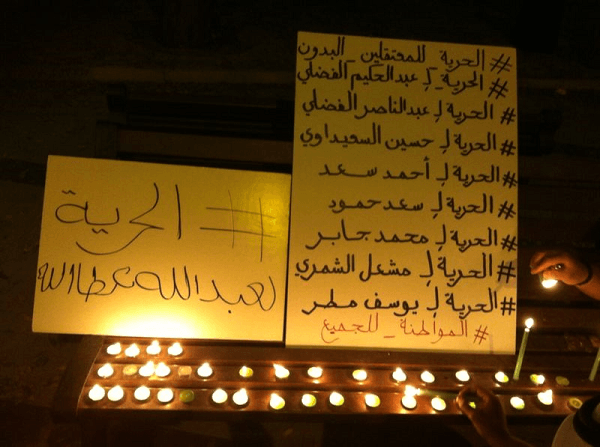 #الحرية_للمعتقلين_البدون
#الحرية_لـ عبدالحكيم الفضلي
#الحرية لـ عبدالناصر الفضلي
#الحرية لـ حسين السعيداوي
#الحرية لـ أحمد سعد
#الحرية لـ سعد حمود
#الحرية لـ محمد جابر
#الحرية لـ مشعل الشمري
#الحرية لـ يوسف مطر
#المواطنة_للجميع
#الحرية
لعبدالله عطاالله